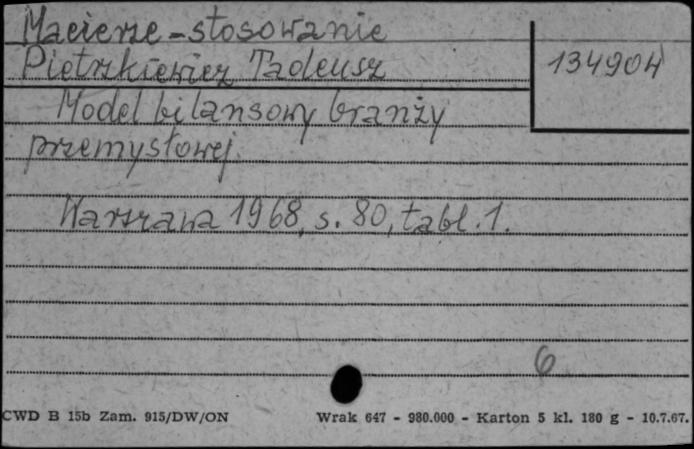 Macierze - stosowanie
Pietrzkiewicz Tadeusz
134904
Model bilansowy branży
przemysłowej.
Warszawa 1968, s. 80, tabl. 1.
6
CWD B 15b Zam. 915/DW/ON
Wrak 647 - 980.000 - Karton 5 kl. 180 g - 10.7.67.